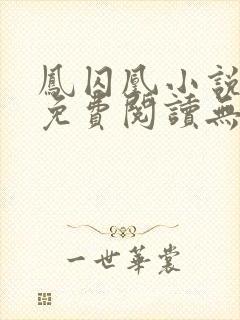 鳳囚凰小說
免費閱讀無
一世華裳